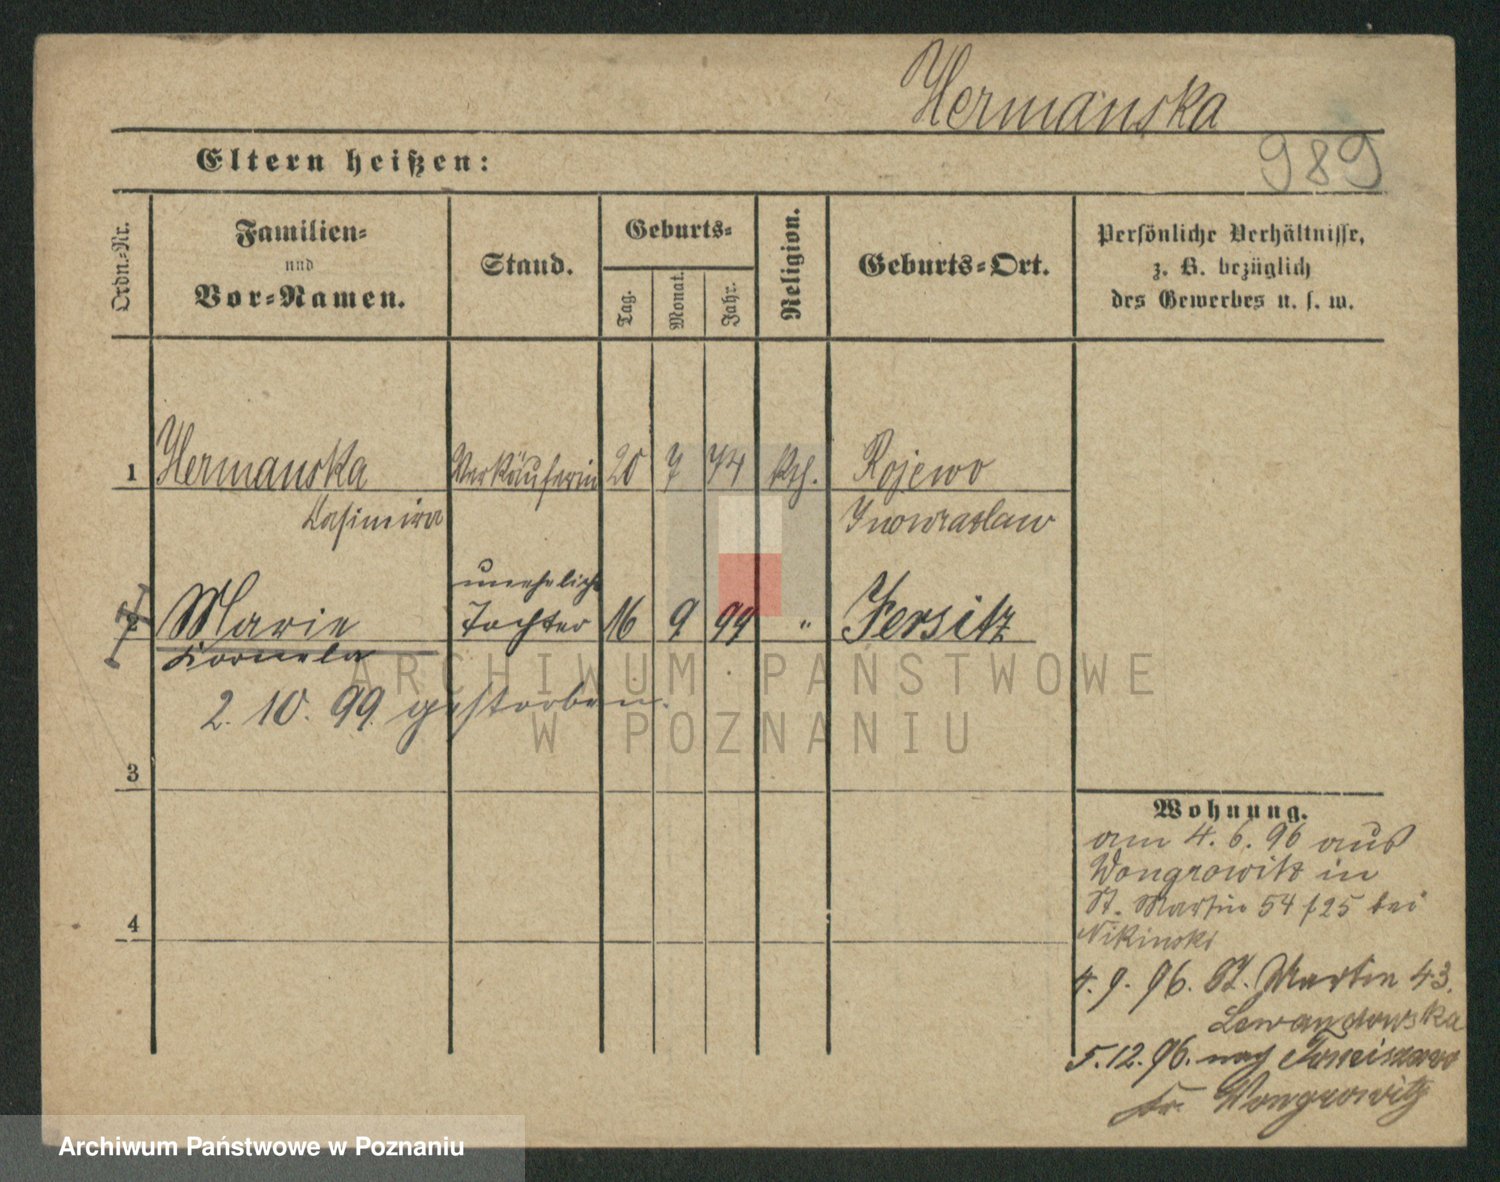 Hermanska
989
Eltern heißen:
Ordn.-Nr.
Familien-
und
Vor-Namen.
Stand.
Geburts-
Tag.
Monat.
Jahr.
Religion.
Geburts-Ort.
Persönliche Verhältnisse,
z. B. bezüglich
des Gewerbes u. s. w.
1 Hermanska Verkäuferin 20 7 74 kth. Rojewo
Kasimira Inowraclaw
2 Marie uneheliche Tochter 16 9 99 " Jersitz
Kornela
2. 10. 99. gestorben.
3
4
Wohnung.
am 4. 6. 96 aus
Wongrowitz in
St. Martin 54/25 bei
Nikinski
4. 9. 96. St. Martin 43.
Lewandowska
5. 12. 96. nach
Kr. Wongrowitz
ARCHIWUM PAŃSTWOWE
W POZNANIU
Archiwum Państwowe w Poznaniu